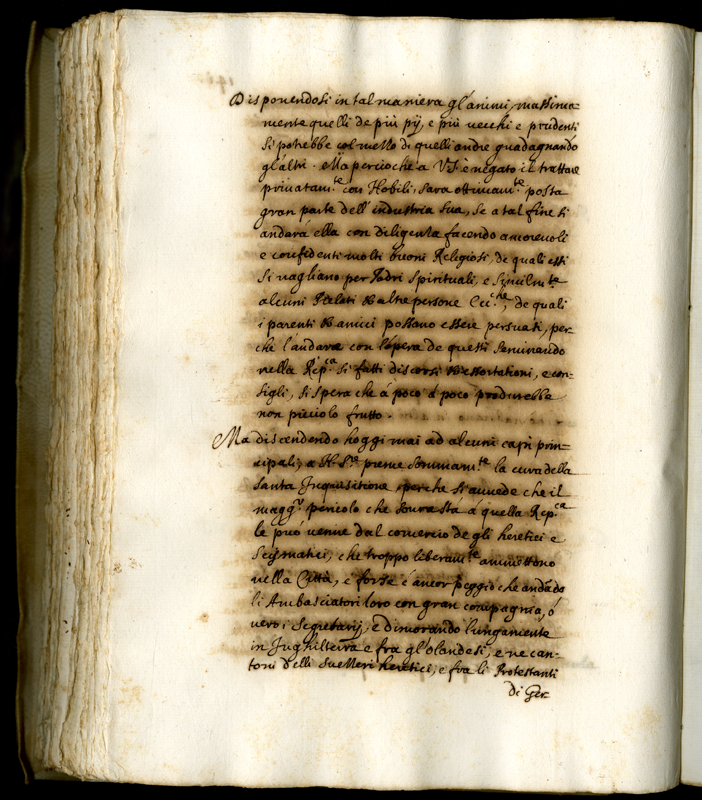 Disponendosi in tal maniera gl'animi, massima-
mente quelli de più pij, e più vecchi e prudenti
si potrebbe col mezzo di quelli andre guadagnando
gl'altri. Ma percioche a V.S. è negato il trattare
privatam.te con Nobili, sara ottimam.te posta
gran parte dell'industria sua, se a tal fine si
andará ella con diligenza facendo amorevoli
e confidenti molti buoni Religiosi, de quali essi
si vagliano per Padri Spirituali, e similm.te
alcuni Prelati et altre persone Ecc.che, de quali
i parenti et amici possano essere persuasi, per
che l'andare con l'opera de questi seminando
nella Rep.ca si fatti discorsi et essortationi, e con-
sigli, si spera che á poco á poco produrebbe
non picciolo frutto.
Ma discendendo hoggi mai ad alcuni capi prin-
cipali, a N. S.re preme sommam.te la cura della
Santa Inquisitione, perche si avvede che il
magg.r pericolo che sovrastá á quella Rep.ca
le puó venire dal comercio de gli heretici e
Scismatici, che troppo liberam.te ammettono
nella Cittá, e forse é ancor peggio che andádo
li Ambasciatori loro con gran compagnia, ó
vero i Segretarij, e dimorando lungamente
in Inghilterra e fra gl'olandesi, e ne can-
toni delli Suezzeri heretici, e fra li Protestanti
di Ger